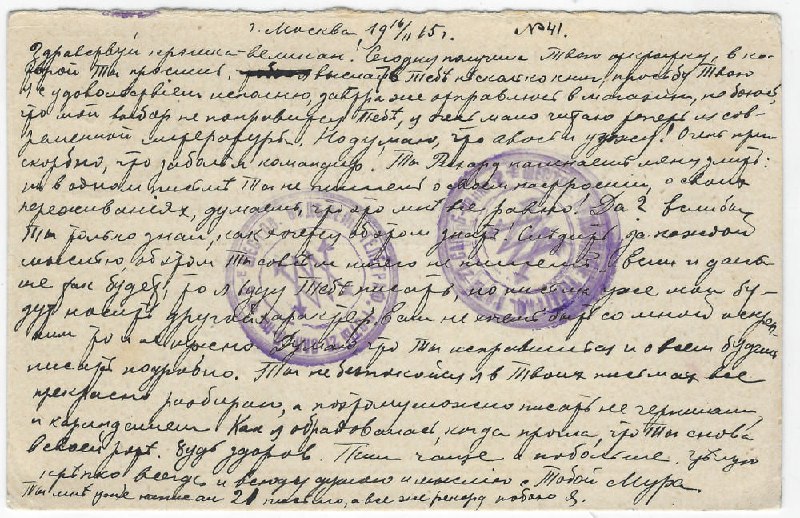 г. Москва 19 16/II 15 г. №41.
Здравствуй крошка-великан! Сегодня получила Твою открытку, в ко-
торой Ты просишь выслать Тебѣ несколько книг, просьбу Твою
я с удовольствием исполню завтра же отправлюсь в магазин, но боюсь,
что мой выбор не понравится Тебѣ, я очень мало читаю теперь из сов-
ременной литературы. Но думаю, что авось и угожу! Очень при-
скорбно, что заболѣл командир. Ты начинаешь меня злить:
ни в одном письмѣ Ты не пишешь о своем настроении, о своих
переживаниях, думаешь, что это мнѣ все равно! Да?
Ты только знал, как хочется обо всем знать! Слѣдить за каждой
мыслью обо всем Ты совсем мало пишешь. Если и даль-
ше так будет, то я буду Тебѣ писать но письма уже мои бу-
дут носить другой характер. Если не хочешь быть со мной искрен-
ним то и не нужно. Думаю что Ты исправишься и обо всем будешь
писать подробно. Ты не беспокойся я в Твоих письмах все
прекрасно разбираю, а потому можно писать не чернилами,
и карандашем. Как я обрадовалась, когда прочла, что Ты снова
в своей ротѣ. Будь здоров. Пиши чаще и побольше. Цѣлую
крѣпко всегда и всюду душою и мыслью с Тобой Мура
Ты мнѣ уже написал 21 письмо, а все же рекорд побью я.